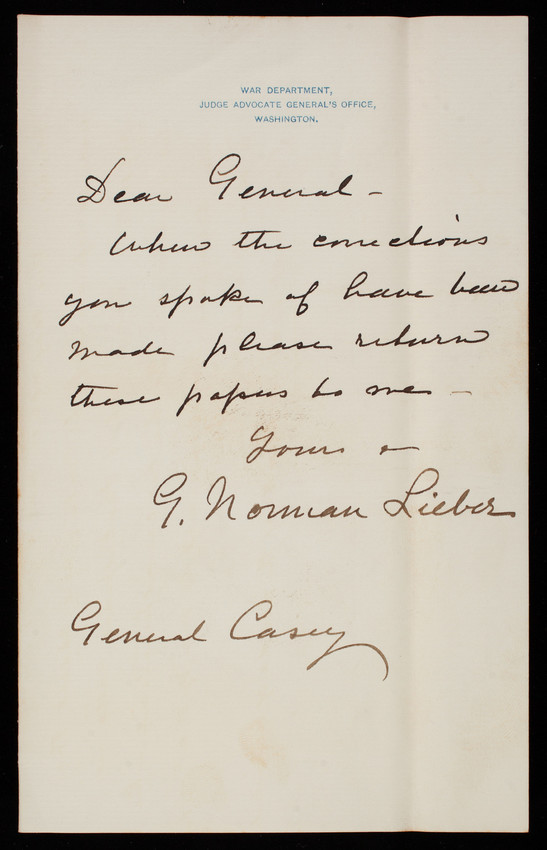 WAR DEPARTMENT,
JUDGE ADVOCATE GENERAL'S OFFICE,
WASHINGTON.
Dear General –
When the corrections
you spoke of have been
made please return
these papers to me –
Yours
G. Norman Lieber
General Casey